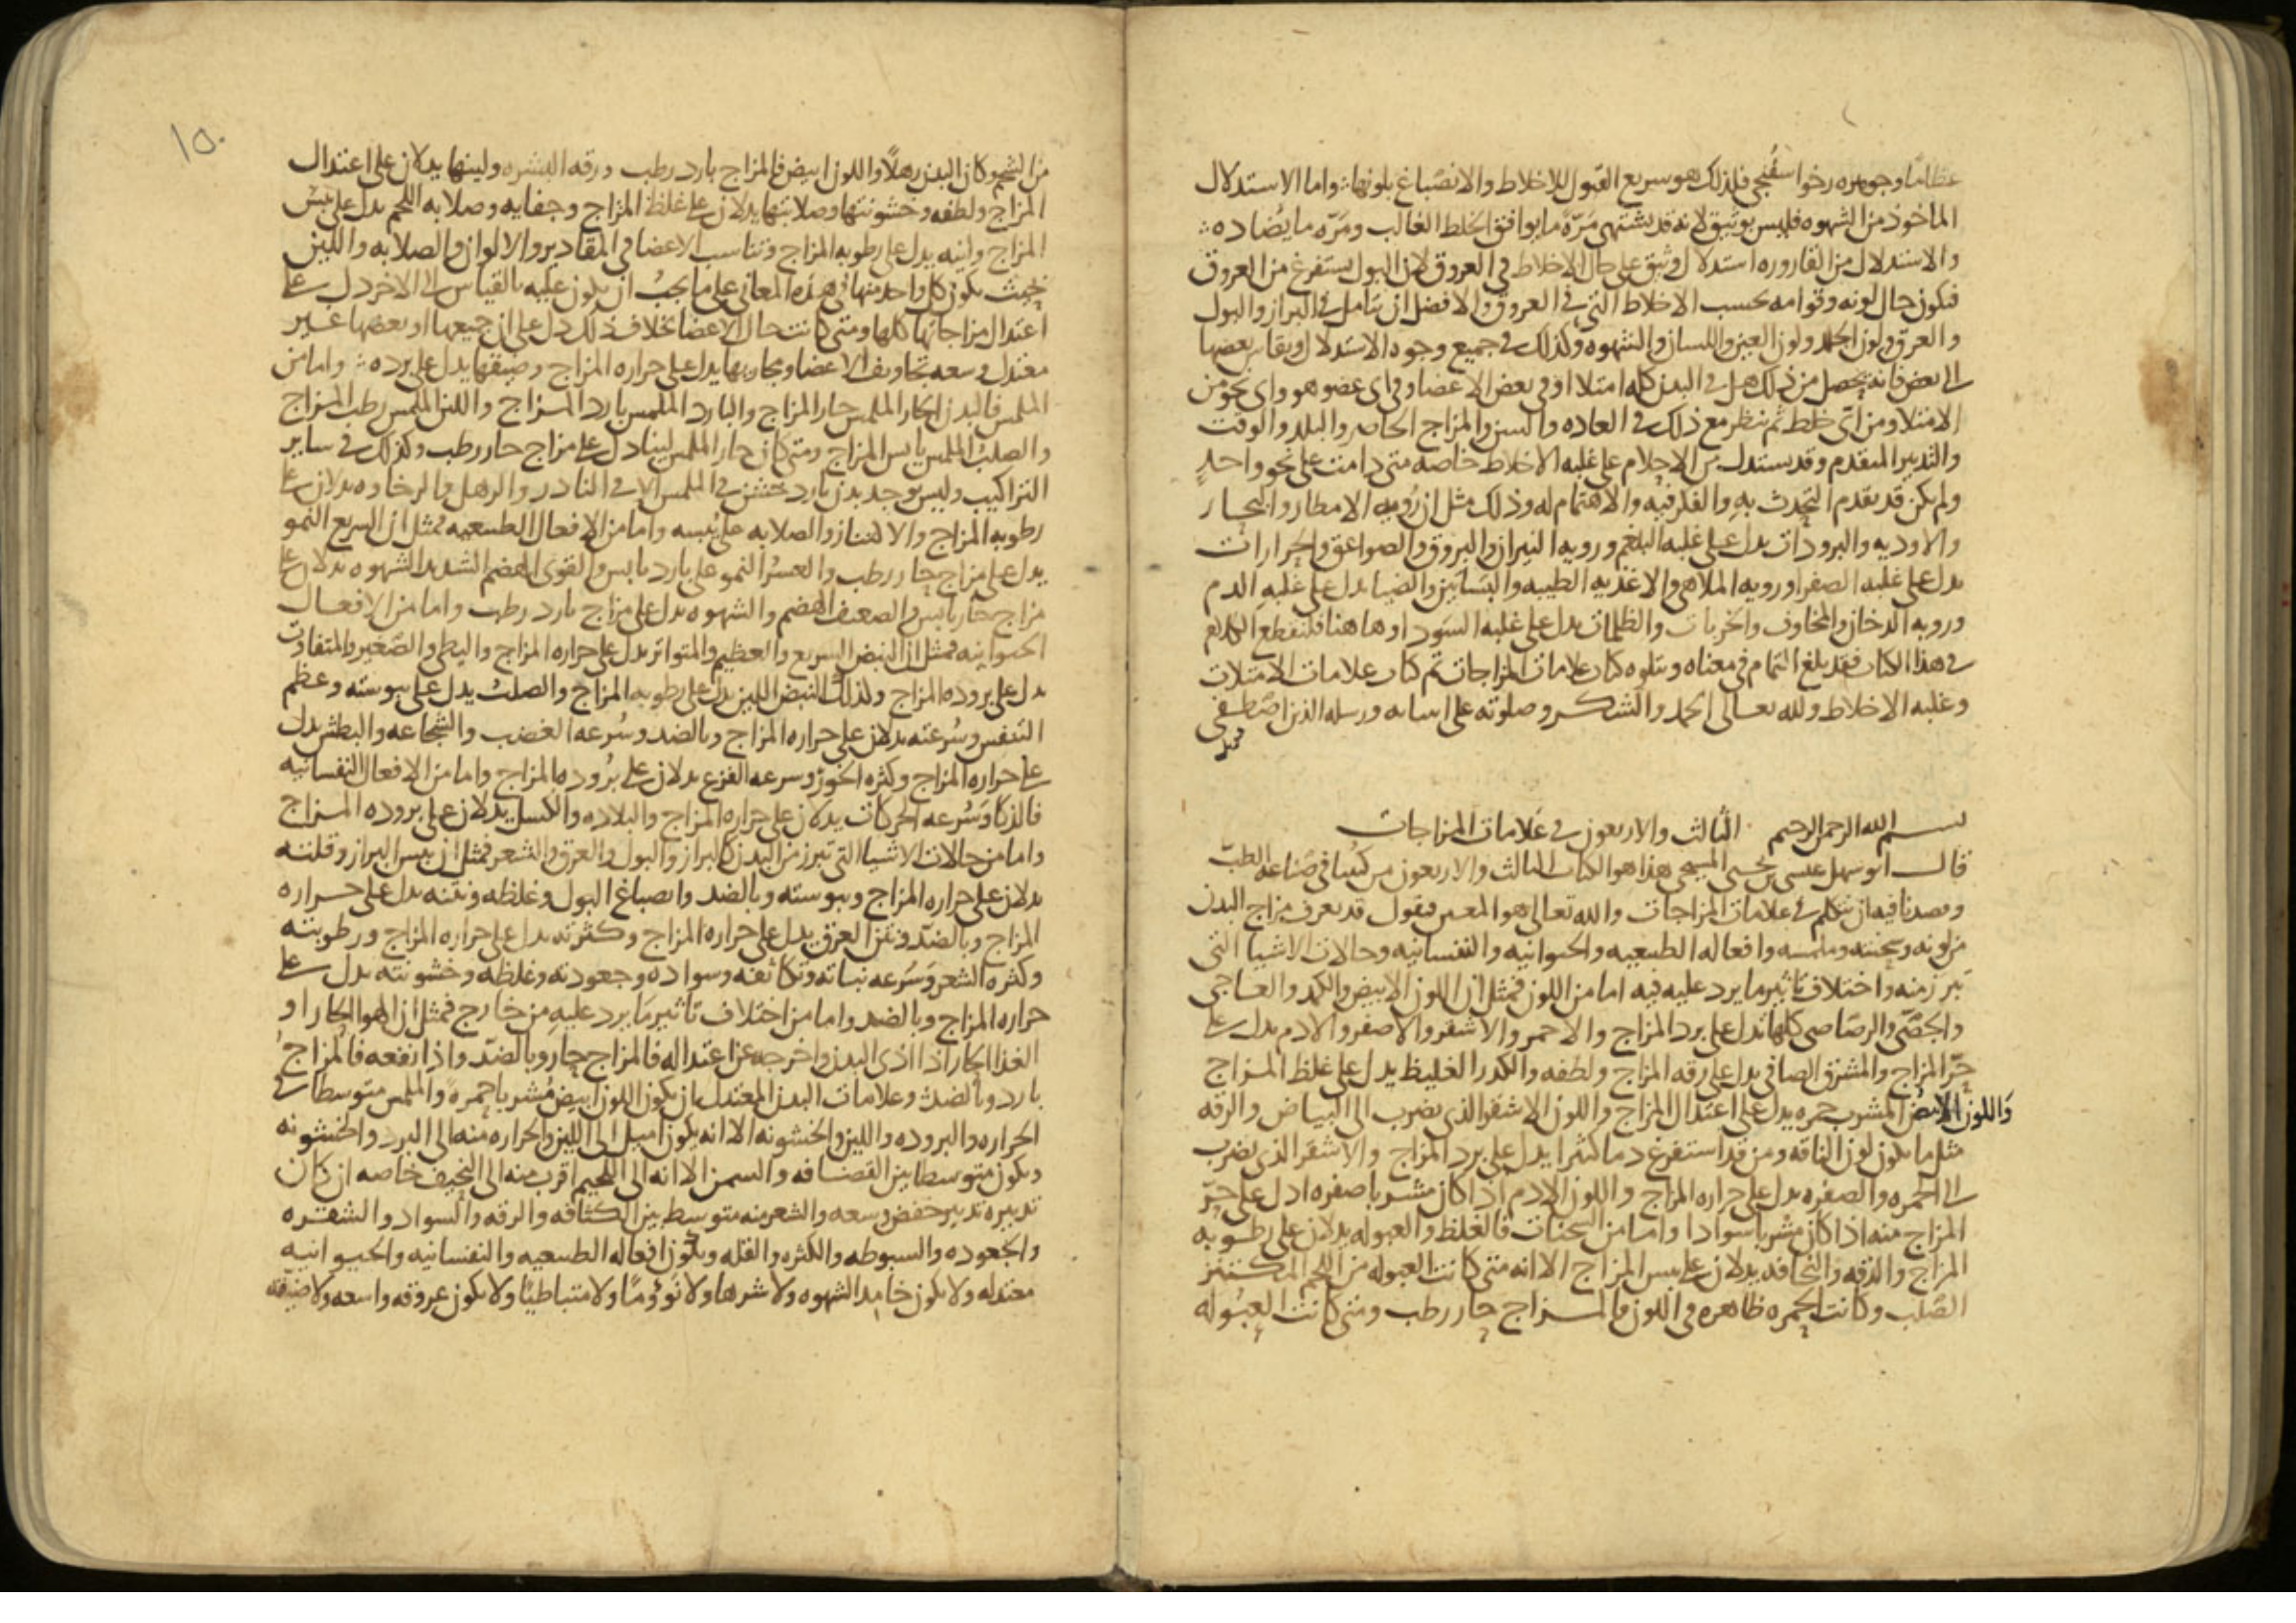 عظاما وجوهره رخوا سفنجى فلذلك هو سريع القبول للاخلاط والانصباغ بلونها واما الاستدلال
الماخوذ من الشهوه فليس بوثيق لانه قد يشتهى مرّة ما يوافق الخلط الغالب ومرّه ما يضاده
والاستدلال من القاروره استدلال وثيق على حال الاخلاط فى العروق لان البول يستفرغ من العروق
فيكون حال لونه وقوامه بحسب الاخلاط التى فى العروق والافضل ان يتامل فى البراز والبول
والعرق ولون الجلد ولون العين واللسان والشهوه وكذلك فى جميع وجوه الاستدلال ويقاس بعضها
الى بعض فانه يحصل من ذلك هل فى البدن كله امتلا او فى بعض الاعضا وفى اى عضو هو واى نحو من
الامتلا ومن اى خلط ثم ينظر مع ذلك فى العاده والسن والمزاج الحاضر والبلد والوقت
والتدبير المتقدم وقد يستدل من الاحلام على غلبه الاخلاط خاصه متى دامت على نحو واحد
ولم يكن قد يقدم التحدث به والفكر فيه والاهتمام له وذلك مثل ان رويه الامطار والبحار
والاوديه والبرودات يدل على غلبه البلغم ورويه النيران والبروق والصواعق والحرارات
يدل على غلبه الصفرا ورويه الملاهى والاغذيه الطيبه والبساتين والضيا يدل على غلبه الدم
وروىه الدخان والمخاوف والخربات والظلمات يدل على غلبه السودا وهاهنا فلنقطع الكلام
فى هذا الكتاب فقد بلغ التمام فى معناه ويتلوه كتاب علامات المزاجات تم كتاب علامات الامتلات
وغلبه الاخلاط ولله تعالى الحمد والشكر وصلوته على انبيايه ورسله الذين اصطفى
بسم الله الرحمن الرحيم الثالث والاربعون فى علامات المزاجات
قال ابو سهل عيسى بن يحيى المسيحى هذا هو الكتاب الثالث والاربعون من كتبنا فى صناعه الطبّ
وقصدنا فيه ان نتكلم فى علامات المزاجات والله تعالى هو المعين فنقول قد يعرف مزاج البدن
من لونه وسحنته وملمسه وافعاله الطبيعيه والحيوانيه والنفسانيه وحالات الاشيا التى
تبرز منه واختلاف تاثير ما يرد عليه فيه اما من اللون فمثل ان اللون الابيض والكمد والعاجى
والجصّى والرصاصى كلها تدل على برد المزاج والاحمر والاشقر والاصفر والادم يدل على
حرّ المزاج والمشرق الصافى يدل على رقه المزاج ولطفه والكدر الغليظ يدل على غلظ المزاج
واللون الابيض المشرب حمره يدل على اعتدال المزاج واللون الاشقر الذى يضرب الى البياض والرقه
مثل ما يكون لون الناقه ومن قد استفرغ دما كثيرا يدل على برد المزاج والاشقر الذى يضرب
الى الحمره والصفره يدل على حراره المزاج واللون الادم اذا كان مشربا صفره ادل على حرّ
المزاج منه اذا كان مشربا سوادا واما من السحنات فالغلظ والعبوله يدلان على رطوبه
المزاج والدقه والنحافه يدلان على يبس المزاج الا انه متى كانت العبوله من اللحم المكتنز
الصّلب وكانت الحمره ظاهره فى اللون فالمزاج حار رطب ومتى كانت العبوله
١٥٠
من الشحم وكان البدن رهلا واللون ابيض فالمزاج بارد رطب ورقه البشره ولينها يدلان على اعتدال
المزاج ولطفه وخشونتها وصلابتها يدلان على غلظ المزاج وجفايه وصلابه اللحم يدل على يبس
المزاج ولينه يدل على رطوبه المزاج وتناسب الاعضا فى المقادير والالوان والصلابه واللين
بحيث يكون كل واحد منها فى هذه المعانى على ما يجب ان يكون عليه بالقياس الى الاخر دل على
اعتدال مزاجاتها كلها ومتى كانت حال الاعضا بخلاف ذلك دل على ان جميعها او بعضها غير
معتدل وسعه تجاويف الاعضا ومجاريها يدل على حراره المزاج وضيقها يدل على برده واما من
الملمس فالبدن الحار الملمس حار المزاج والبارد الملمس بارد المزاج واللين الملمس رطب المزاج
والصلب الملمس يابس المزاج ومتى كان حار الملمس لينا دل على مزاج حار رطب وكذلك فى ساير
التراكيب وليس يوجد بدن بارد خشن فى الملمس الا فى النادر والرهل والرخاوه يدلان على
رطوبه المزاج والاكتناز والصلابه على يبسه واما من الافعال الطبيعيه فمثل ان السريع النمو
يدل على مزاج حار رطب والعسر النمو على بارد يابس والقوى الهضم الشديد الشهوه يدلان على
مزاج حار يابس والضعيف الهضم والشهوه يدل على مزاج بارد رطب واما من الافعال
الحيوانيه فمثل ان النبض السريع والعظيم والمتواتر يدل على حراره المزاج والبطى والصّغير والمتفاوت
يدل على بروده المزاج ولذلك النبض اللين يدل على رطوبه المزاج والصلب يدل على يبوسته وعظم
التنفس وسرعته يدلان على حراره المزاج وبالضد وسرعه الغضب والشجاعه والبطش يدل
على حراره المزاج وكثره الخوف وسرعه الفزع يدلان على بروده المزاج واما من الافعال النفسانيه
فالذكا وسرعه الحركات يدلان على حراره المزاج والبلاده والكسل يدلان على بروده المزاج
واما من حالات الاشيا التى تبرز من البدن كالبراز والبول والعرق والشعر فمثل ان يبس البراز وقلته
يدلان على حراره المزاج ويبوسته وبالضد وانصباغ البول وغلظه ونتنه يدل على حراره
المزاج وبالضدّ ونتن العرق يدل على حراره المزاج وكثرته يدل على حراره المزاج ورطوبته
وكثره الشعر وسرعه نباته وتكاثفه وسواده وجعودته وغلظه وخشونته يدل على
حراره المزاج وبالضد واما من اختلاف تاثير ما يرد عليه من خارج فمثل ان الهوا الحار او
الغذا الحار اذا اذى البدن واخرجه عن اعتداله فالمزاج حار وبالضدّ واذا نفعه فالمزاج
بارد وبالضد وعلامات البدن المعتدل ان يكون اللون ابيض مشربا حمره والملمس متوسطا فى
الحراره والبروده واللين والخشونه الا انه يكون اميل الى اللين والحراره منه الى البرد والخشونه
ويكون متوسطا بين القضافه والسمن الا انه الى اللحيم اقرب منه الى النحيف خاصه ان كان
تدبيره تدبير خفض وسعه والشعر منه متوسط بين الكثافه والرقه والسواد والشقره
والجعوده والسبوطه والكثره والقله ويكون افعاله الطبيعيه والنفسانيه والحيوانيه
معتدله ولا يكون خامد الشهوه ولا شرها ولا نوؤما ولا متباطيا ولا يكون عروقه واسعه ولا ضيقه